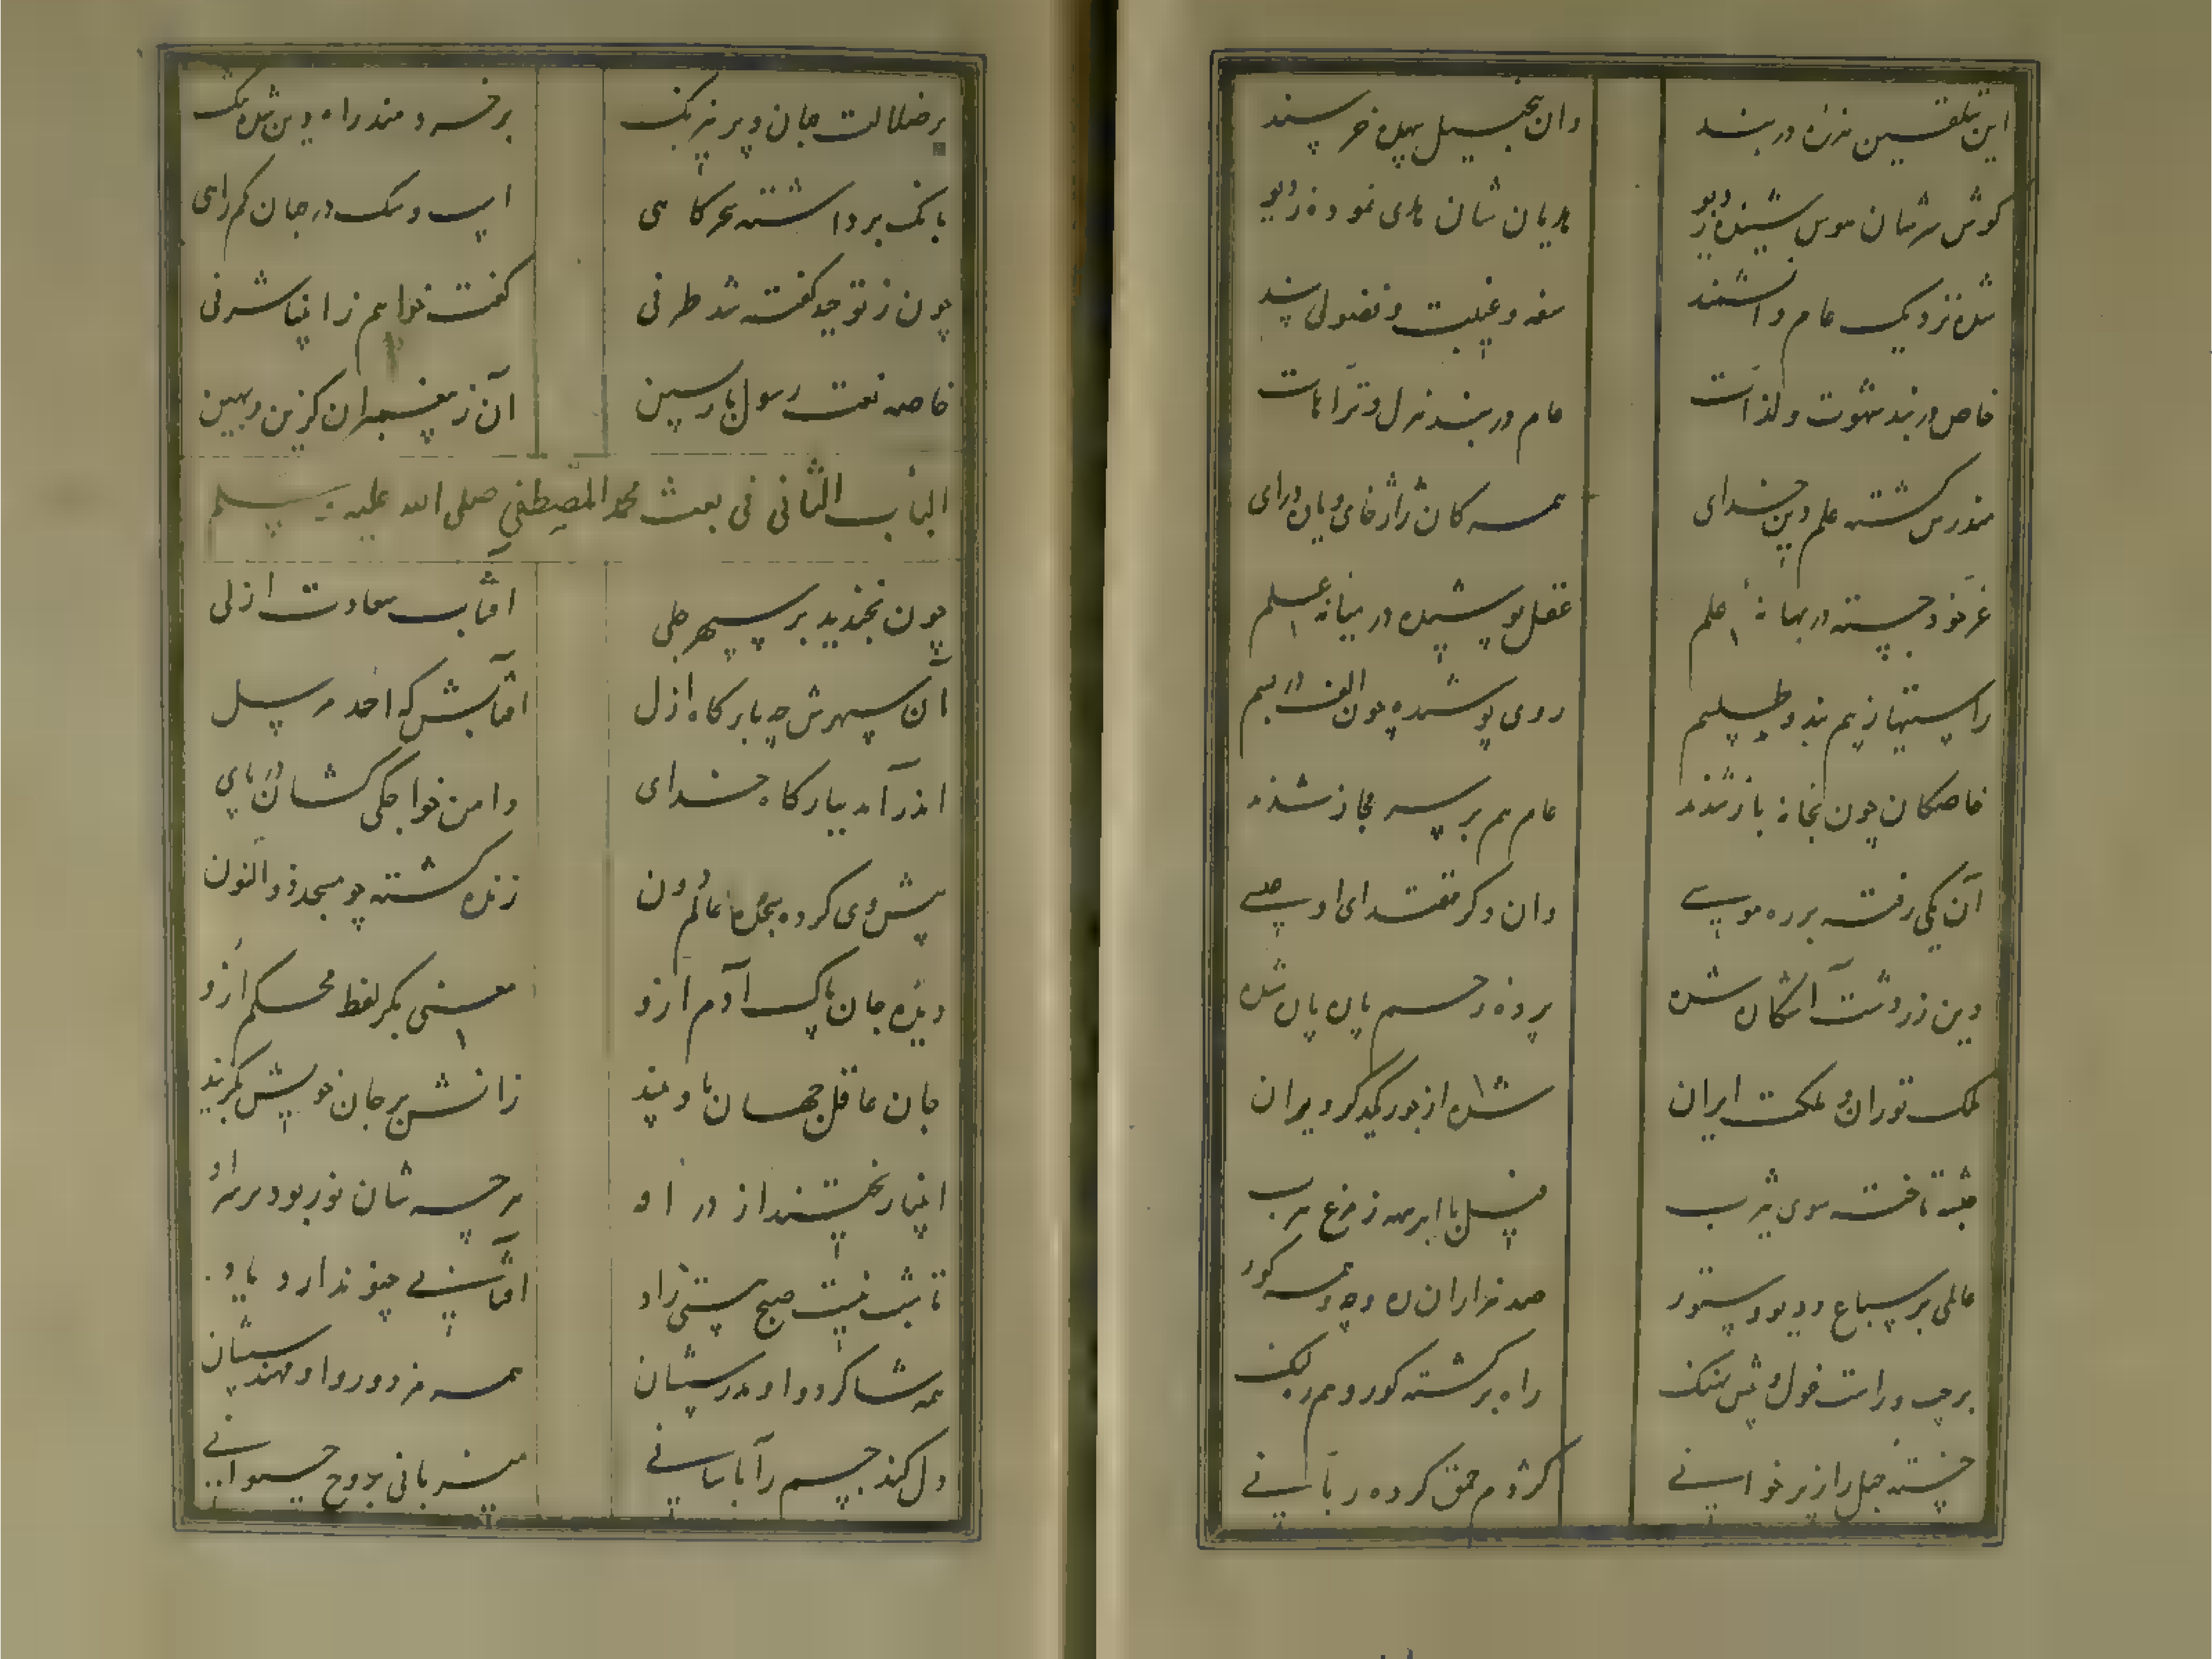 این بتلقین هرزه در بند وان بتخییل بیهده خرسند
گوش سرشان سوی شنیده ز دیو هادیان شان هدی نموده ز دیو
شده نزدیک عام و دانشمند سفه و غیبت و فضولی پند
خاص در بند شهوت و لذات عام در بند هزل و ترهات
مندرس گشته علم دین خدای همه کان ژاژ خای و یاه درای
عز خود جسته در بهانه علم عقل پوشیده در میانه علم
راستیها ز بیم بند و طلسم روی پوشیده چون الف در بسم
خاصگان چون بخانه باز شدند عام هم بر سر مجاز شدند
آن یکی رفته بر ره موسی وان دگر مقتدای او عیسی
دین زردشت آشکارا شده پرده رحم پاره پاره شده
ملک توران و ملکت ایران شده از جور یکدگر ویران
حبشه تاخته سوی یثرب فیل با ابرهه ز مرغ هرب
عالمی پر سباع و دیو و ستور صد هزاران ره و چه و همه کور
بر چپ و راست غول و پیش نهنگ راه برگشته کور و همره لنگ
خفته جهل را ز پر خوابی کژدم حمق کرده ربابی
بر ضلالت جهان و پر نیرنگ بر خردمند راه دین شده تنگ
بانگ برداشته سحرگاهی اسب و سگ در جهان گمراهی
چون ز توحید گفته شد طرفی گفت خواهم ز انبیا شرفی
خاصه نعت رسول بازپسین آن ز پیغمبران گزین و بهین
الباب الثانی فی بعث محمد المصطفی صلی الله علیه وسلم
چون بخندید بر سپهر جلی آفتاب سعادت ازلی
آن سپهرش چه بارگاه ازل آفتابش که احمد مرسل
اندرآمد ببارگاه خدای دامن خواجگی کشان در پای
پیش وی کرده سجده عالم دون زنده گشته چو مسجد ذوالنون
دیده جان پاک آدم ازو معنی بکر لفظ محکم ازو
جان عاقل جهان نادیده زانش بر جان خویش بگزیده
انبیا ریختند از در او هر چه شان نور بود بر سر او
تا شب نیست صبح هستی زاد آفتابی چنو ندارد یاد
همه شاگرد و او مدرسشان همه مزدور و او مهندسشان
دل کند جسم را باسانی میزبانی بروح حیوانی